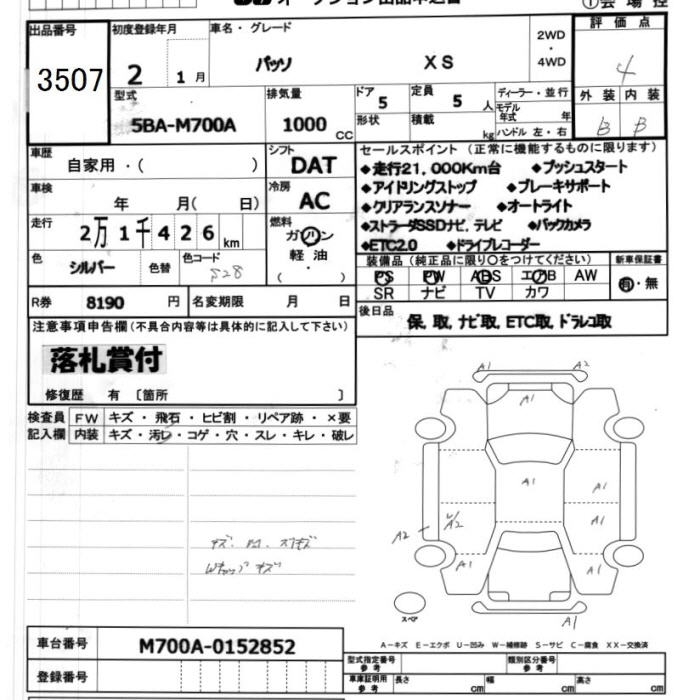 出品番号 初度登録年月 車名・グレード ①会場控
3507 2 1月 パッソ XS 2WD・4WD 評価点 4
型式 排気量 ドア 定員 ディーラー・並行 外装 内装
5BA-M700A 1000 CC 5 5 人 モデル年式 年 B B
形状 積載 kg ハンドル 左・右
車歴 自家用・( ) シフト DAT
セールスポイント (正常に機能するものに限ります)
◆走行21,000Km台 ◆プッシュスタート
車検 年 月( 日) 冷房 AC
◆アイドリングストップ ◆ブレーキサポート
◆クリアランスソナー ◆オートライト
走行 2万1千426km 燃料 ガソリン
◆ストラーダSSDナビ、テレビ ◆バックカメラ
◆ETC2.0 ◆ドライブレコーダー
色 シルバー 色替 色コード S28 軽油 ( )
装備品(純正品に限り○をつけてください) 新車保証書
PS PW ABS エアB AW 有・無
SR ナビ TV カワ
R券 8190 円 名変期限 月 日
後日品 保、取、ナビ取、ETC取、ドラレコ取
注意事項申告欄(不具合内容等は具体的に記入して下さい)
落札賞付
修復歴 有 〔箇所 〕
検査員 FW キズ・飛石・ヒビ割・リペア跡・×要
記入欄 内装 キズ・汚レ・コゲ・穴・スレ・キレ・破レ
A1 A2
A1
A1 A1
A2 A2 A1
A1 A1
スペア A1
A-キズ E-エクボ U-凹み W-補修跡 S-サビ C-腐食 XX-交換済
車台番号 M700A-0152852
型式指定番号 参考 類別区分番号 参考
登録番号 車庫証明用 参考 長さ cm 幅 cm 高さ cm